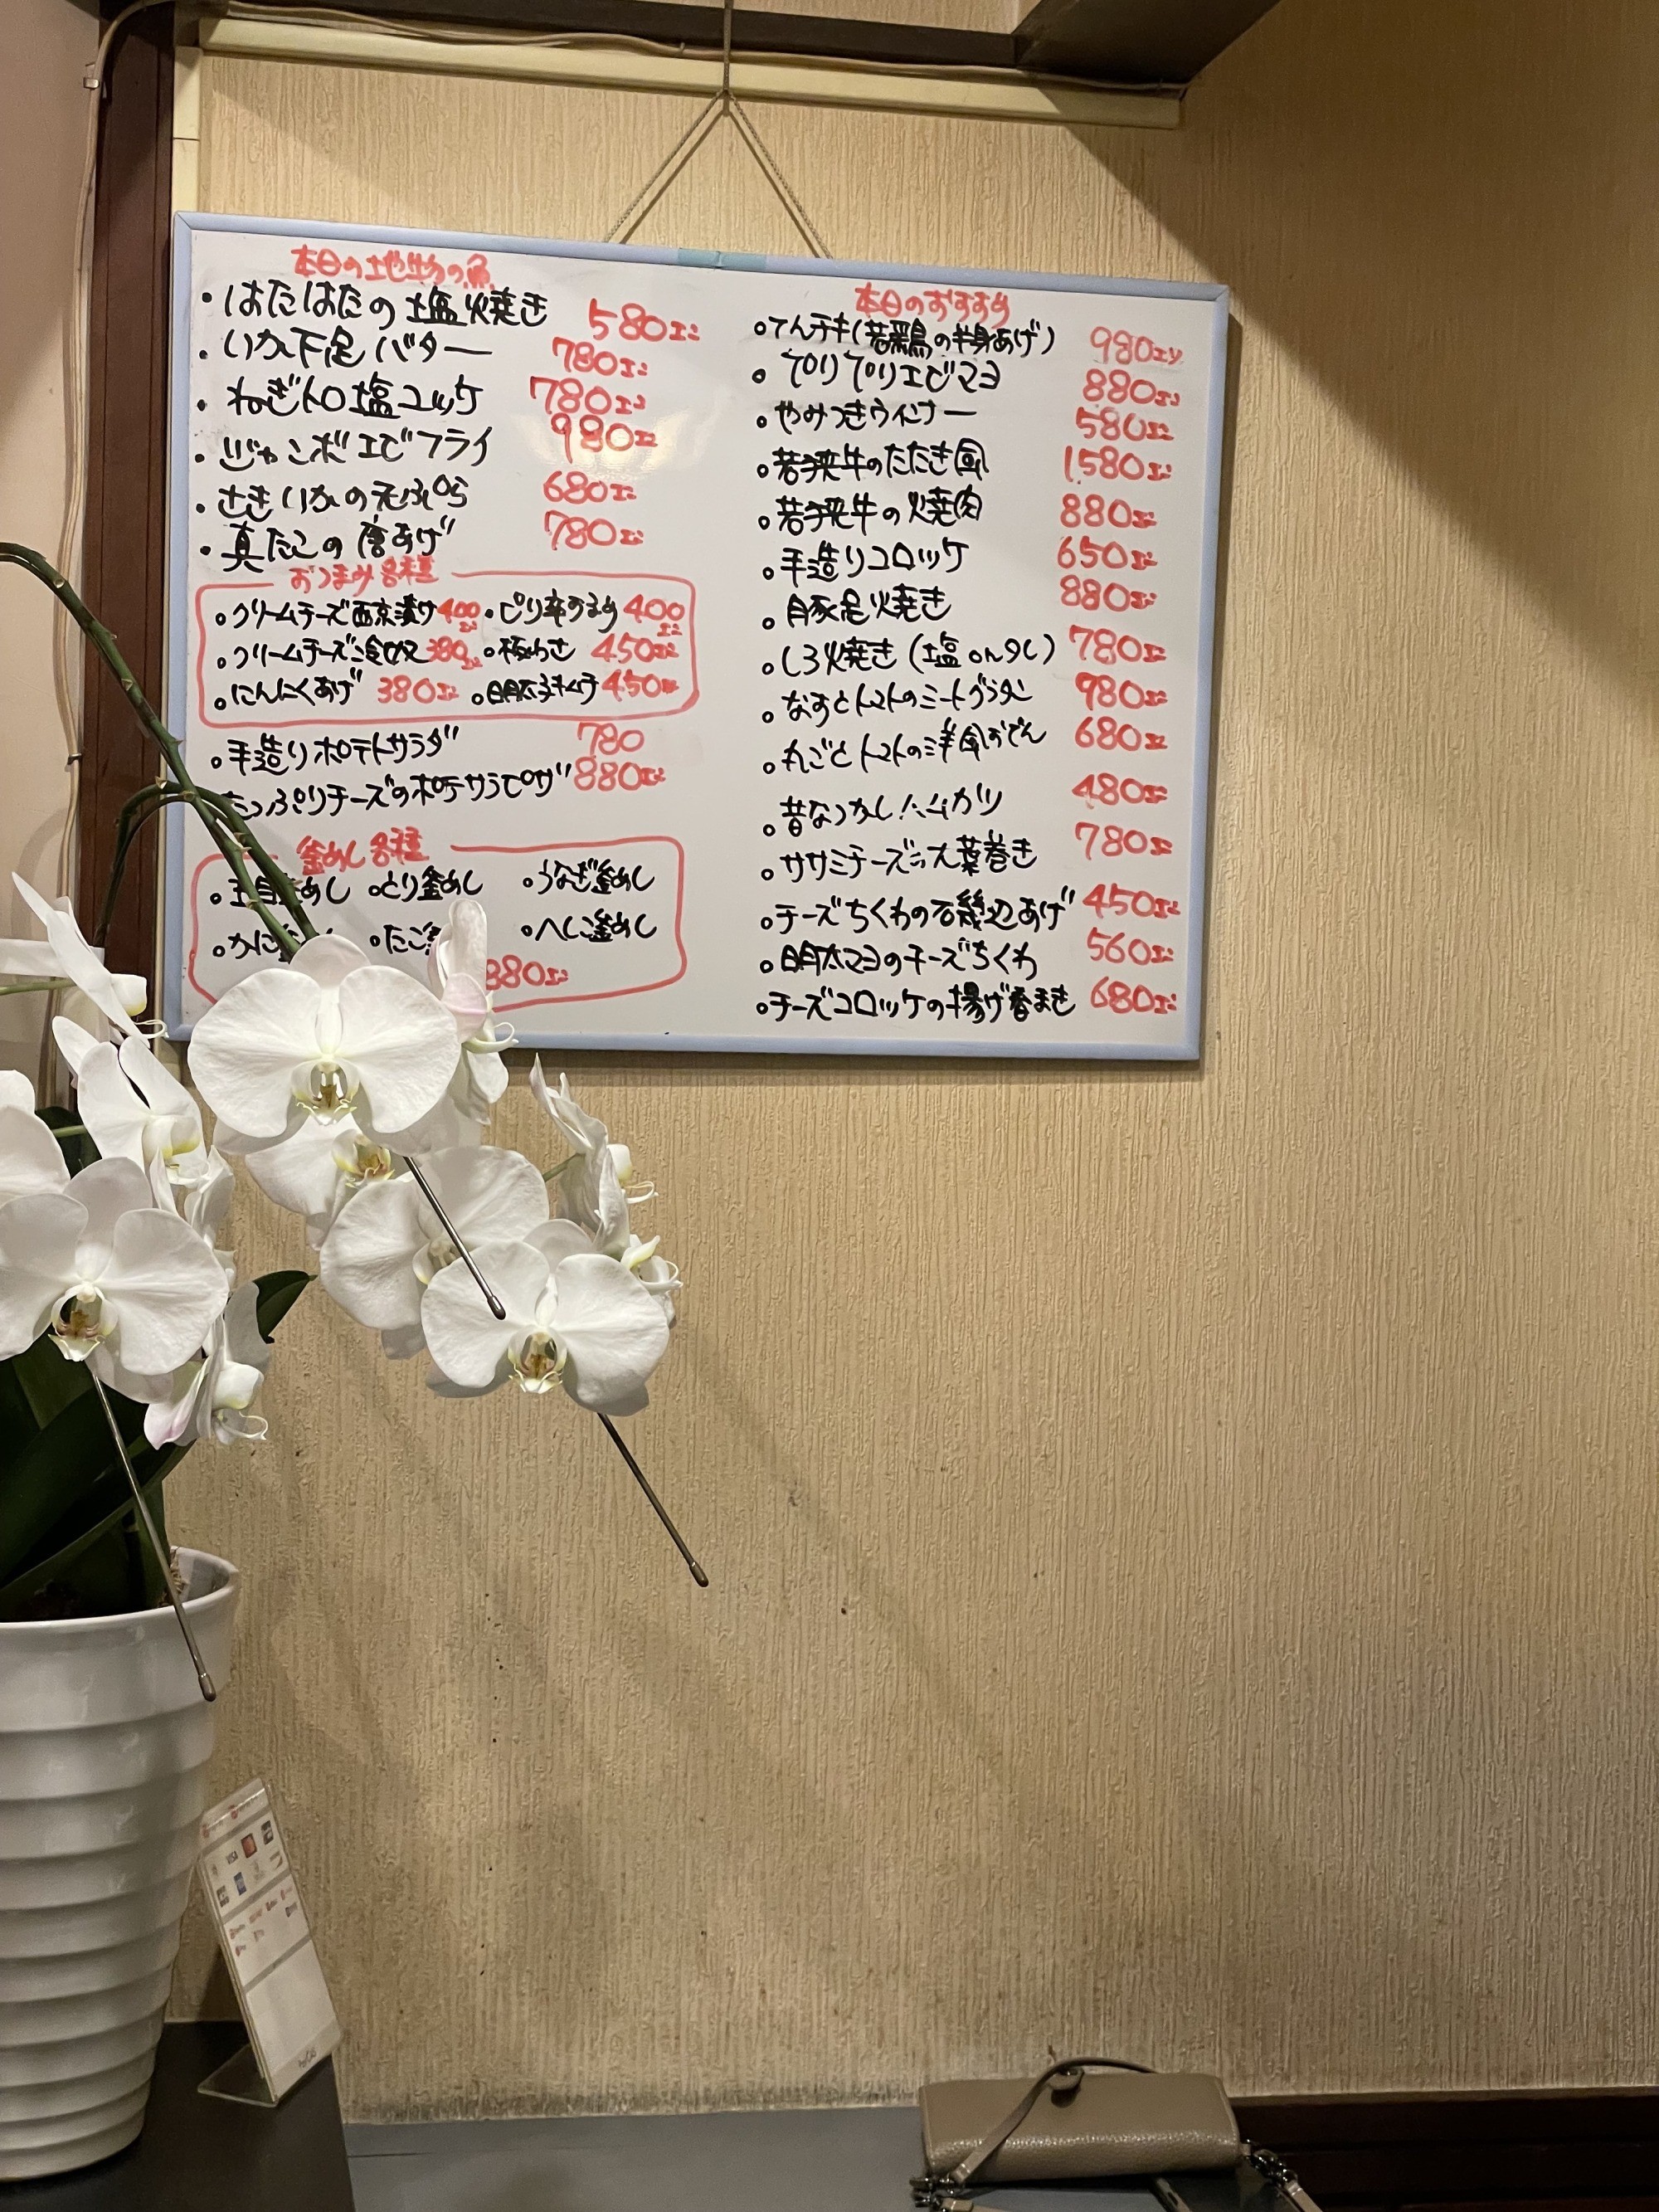 本日の地物の魚
・はたはたの塩焼き 580エン
・いか下足バター 780エン
・ねぎトロ塩ユッケ 780エン
・ジャンボエビフライ 980エン
・さきいかの天ぷら 680エン
・真たこの唐あげ 780エン
おつまみ各種
・クリームチーズ西京漬け 400エン ・ピリ辛 400エン
・クリームチーズ冷奴 380エン ・板わさ 450エン
・にんにくあげ 380エン ・明太子キムチ 450エン
・手造りポテトサラダ 780
たっぷりチーズのポテサラピザ 880エン
釜めし各種
・五目釜めし ・とり釜めし ・うなぎ釜めし
・かに ・たこ ・へしこ釜めし
880エン
本日のおすすめ
・てんチキ(若鶏の半身あげ) 980エン
・プリプリエビマヨ 880エン
・やみつきウィンナー 580エン
・若狭牛のたたき風 1,580エン
・若狭牛の焼肉 880エン
・手造りコロッケ 650エン
・豚足焼き 880エン
・しろ焼き(塩orタレ) 780エン
・なすとトマトのミートグラタン 980エン
・丸ごとトマトの洋風おでん 680エン
・昔なつかしハムカツ 480エン
・ササミチーズ大葉巻き 780エン
・チーズちくわの磯辺あげ 450エン
・明太マヨのチーズちくわ 560エン
・チーズコロッケの揚げ春まき 680エン
VISA